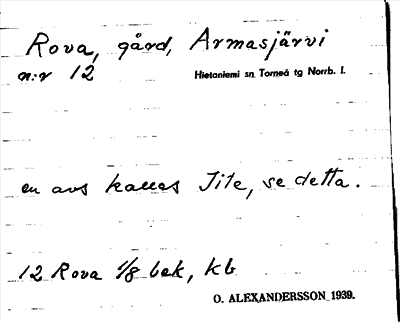 Rova, gård, Armasjärvi
n:r 12
Hietaniemi sn. Torneå tg Norrb. l.
en avs kallas Jite, se detta.
12 Rova 1/8 bek, kb
O. ALEXANDERSSON 1939.